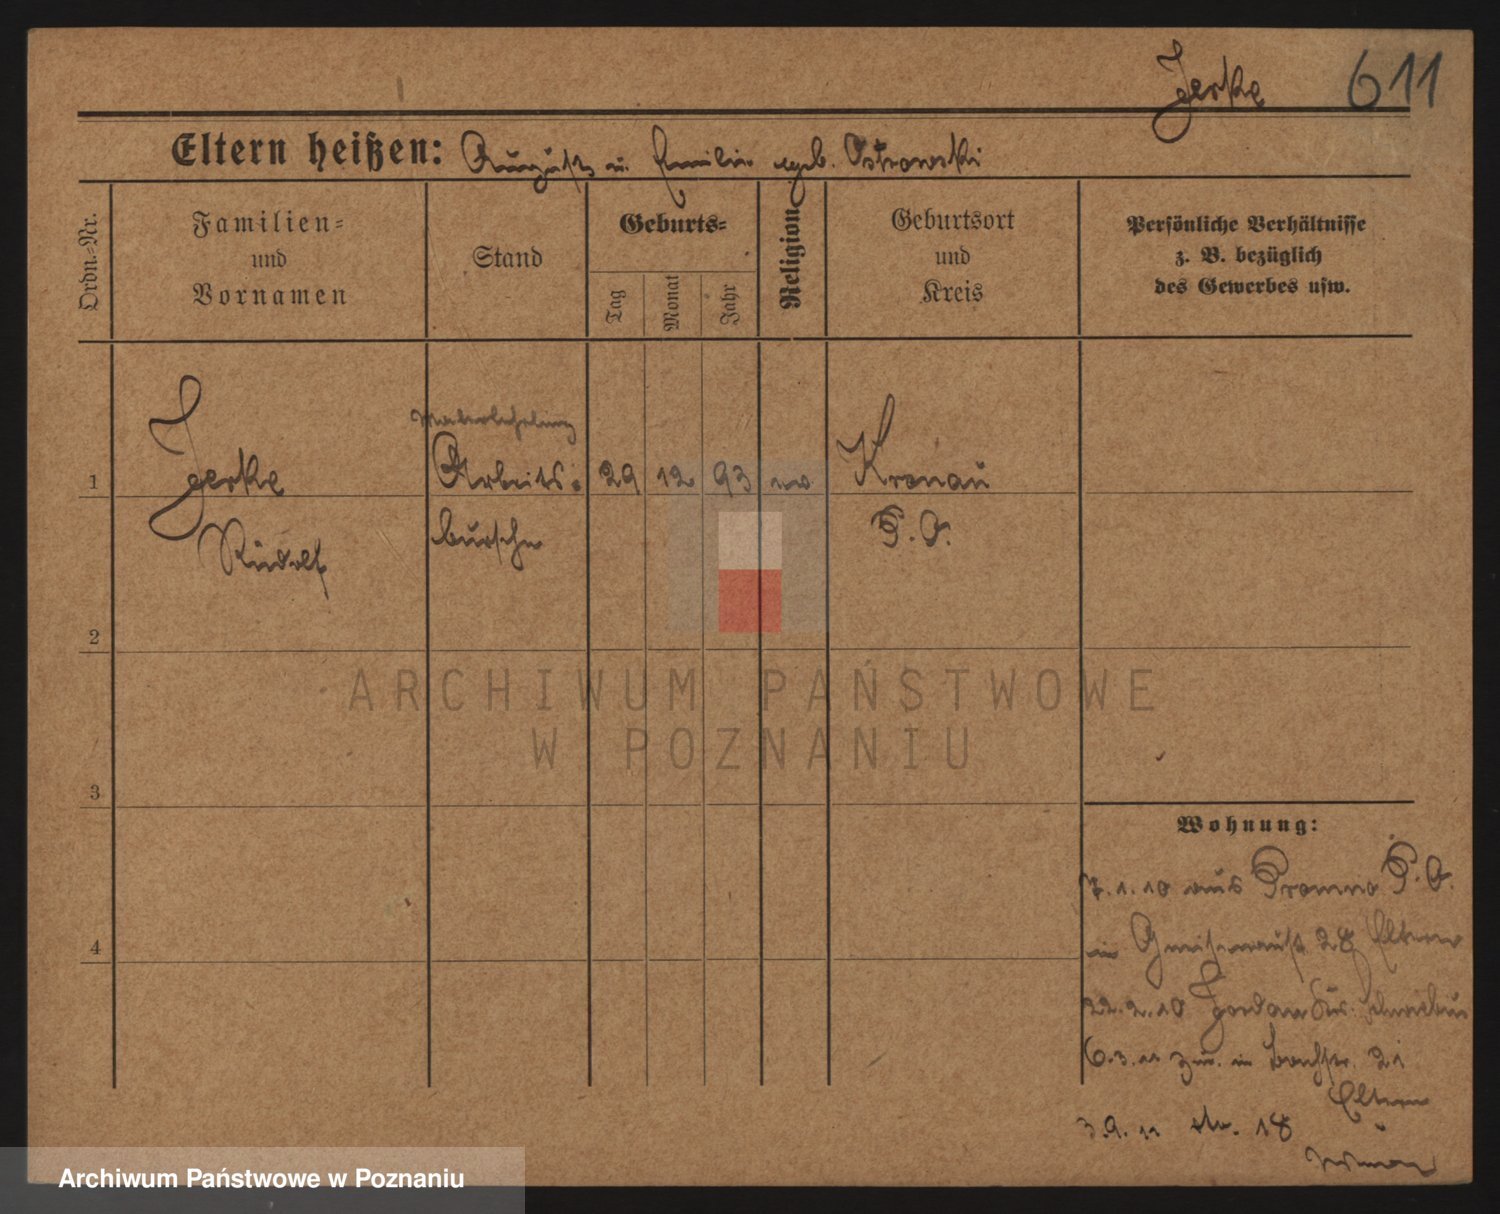 Jerke 611
Eltern heißen: August u. Emilie geb. Ostrowski
Ordn.-Nr.
Familien=
und
Vornamen
Stand
Geburts=
Tag
Monat
Jahr
Religion
Geburtsort
und
Kreis
Persönliche Verhältnisse
z. B. bezüglich
des Gewerbes usw.
Malerlehrling
1 Jerke Arbeits= 29 12 93 ev Kronau
Rudolf bursche P. O.
2
3
4
Wohnung:
7.1.10 aus Promno P. O.
in Gneisenaustr 28 Eltern
22.2.10 Jordan Kr.
6.3.11 zur. in 21
Eltern
3.9.11 18
ARCHIWUM PAŃSTWOWE
W POZNANIU
Archiwum Państwowe w Poznaniu